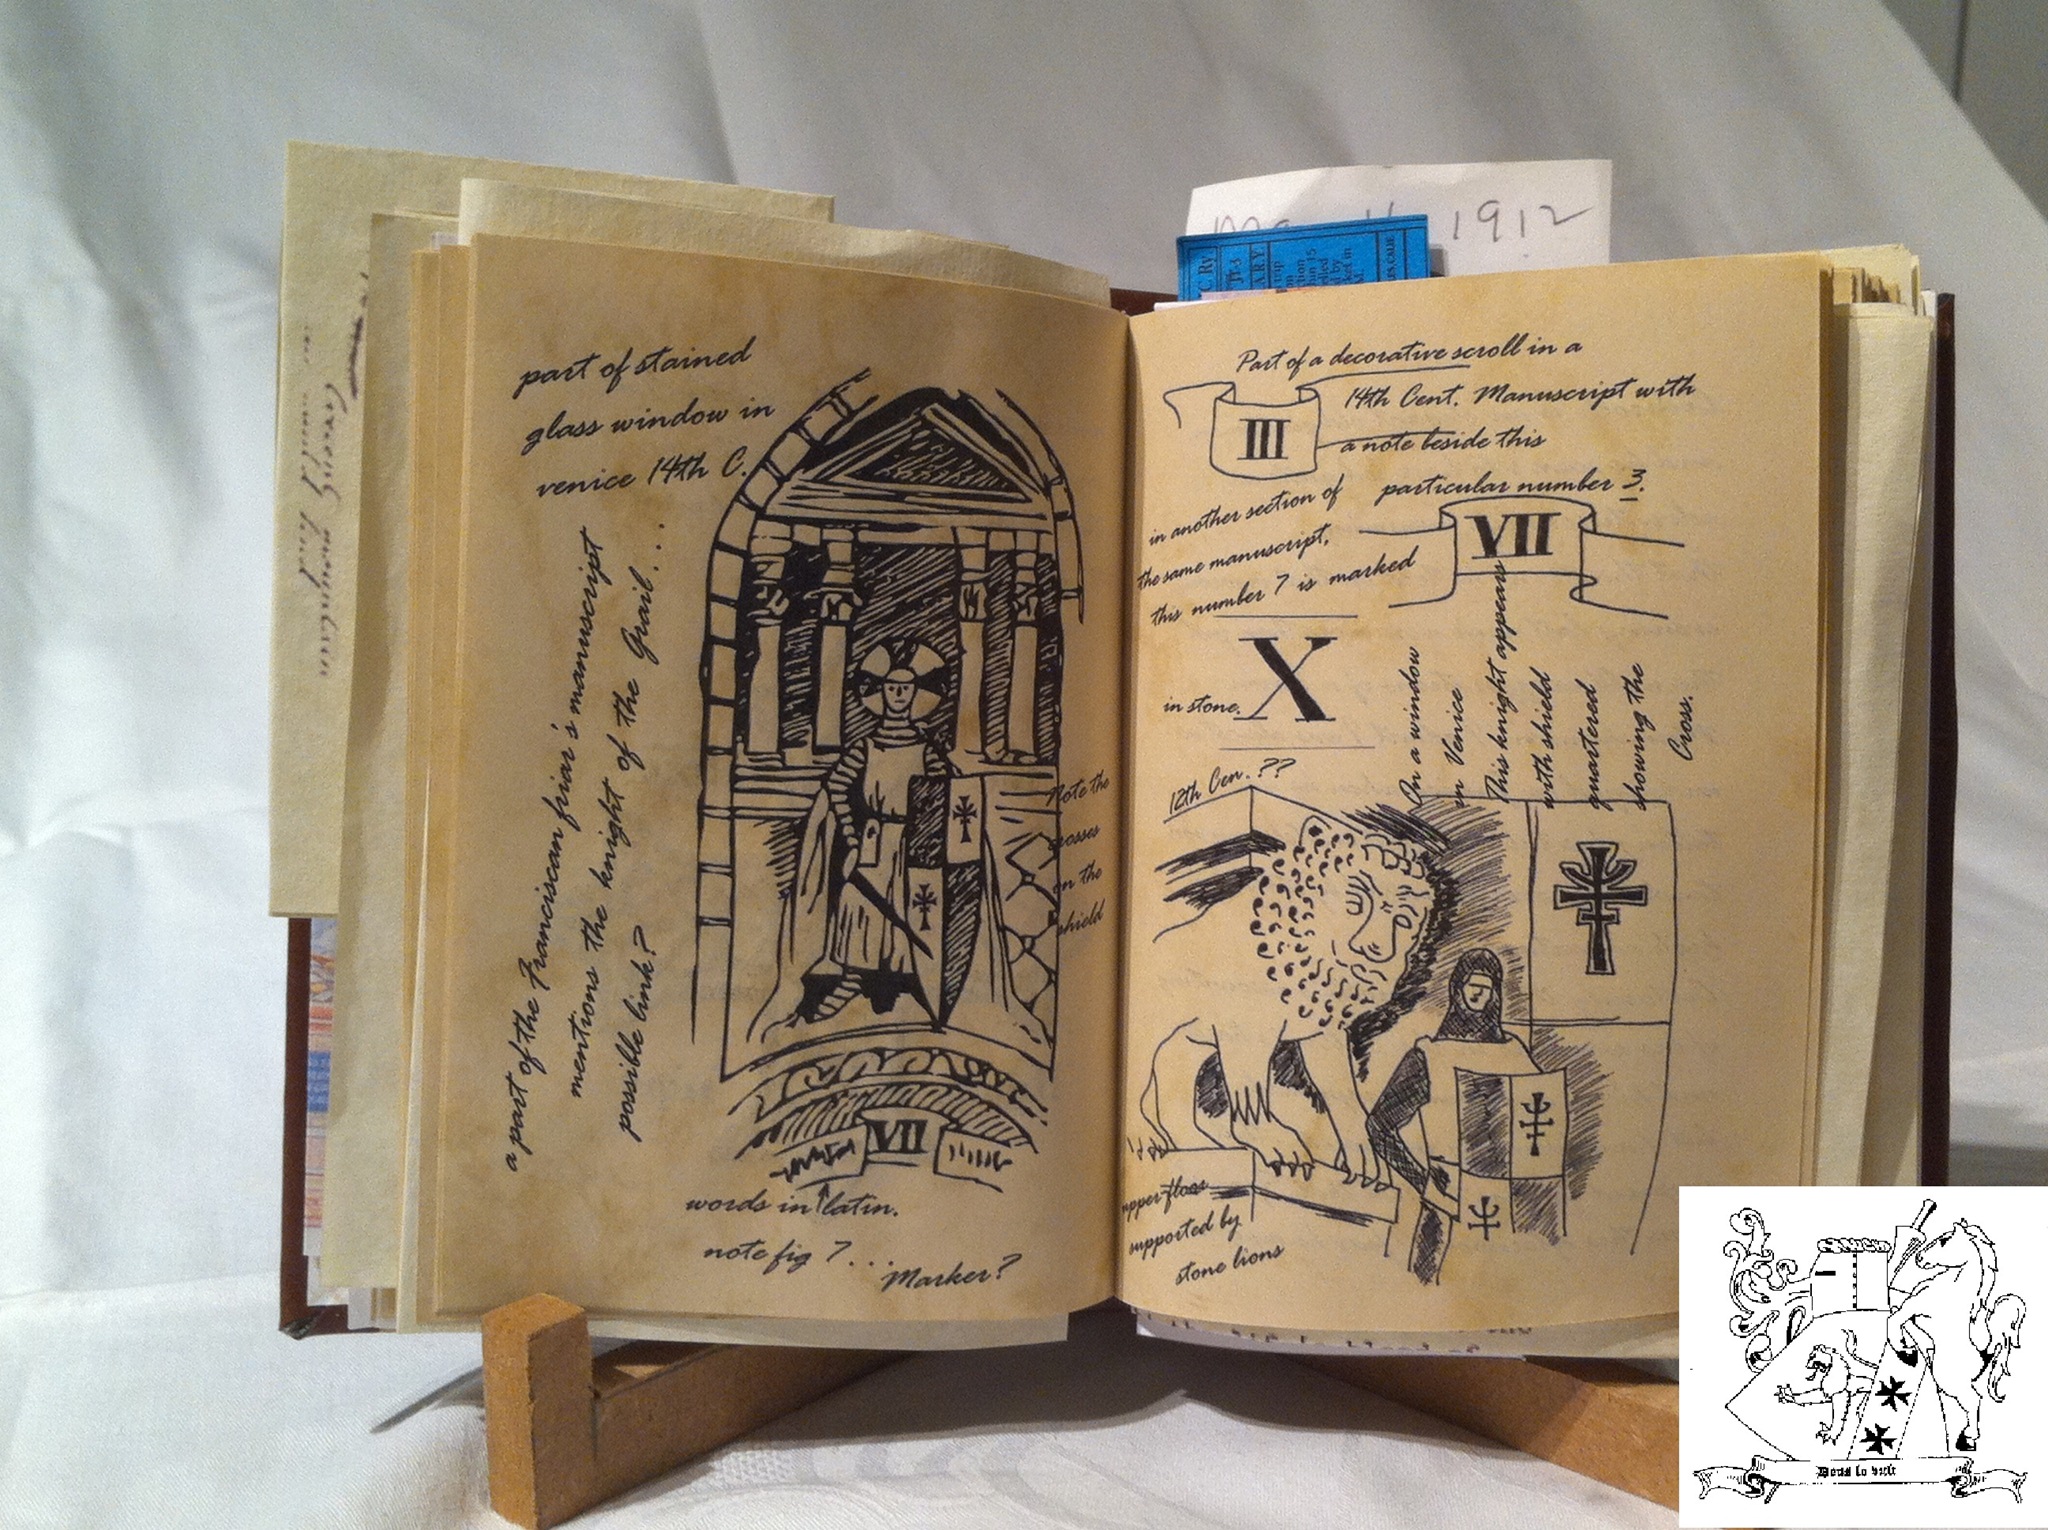 1912
C. Ry
part of stained
glass window in
venice 14th C.
a part of the Franciscan friar's manuscript
mentions the knight of the Grail....
possible link?
Note the
crosses
on the
shield
VII
words in latin.
note fig 7...
Marker?
Part of a decorative scroll in a
14th Cent. Manuscript with
III
a note beside this
particular number 3.
in another section of
the same manuscript,
this number 7 is marked
VII
X
in stone.
On a window
in Venice
This knight appears
with shield
quartered
showing the
Cross.
12th Cen. ??
upper floor
supported by
stone lions
Deus lo vult